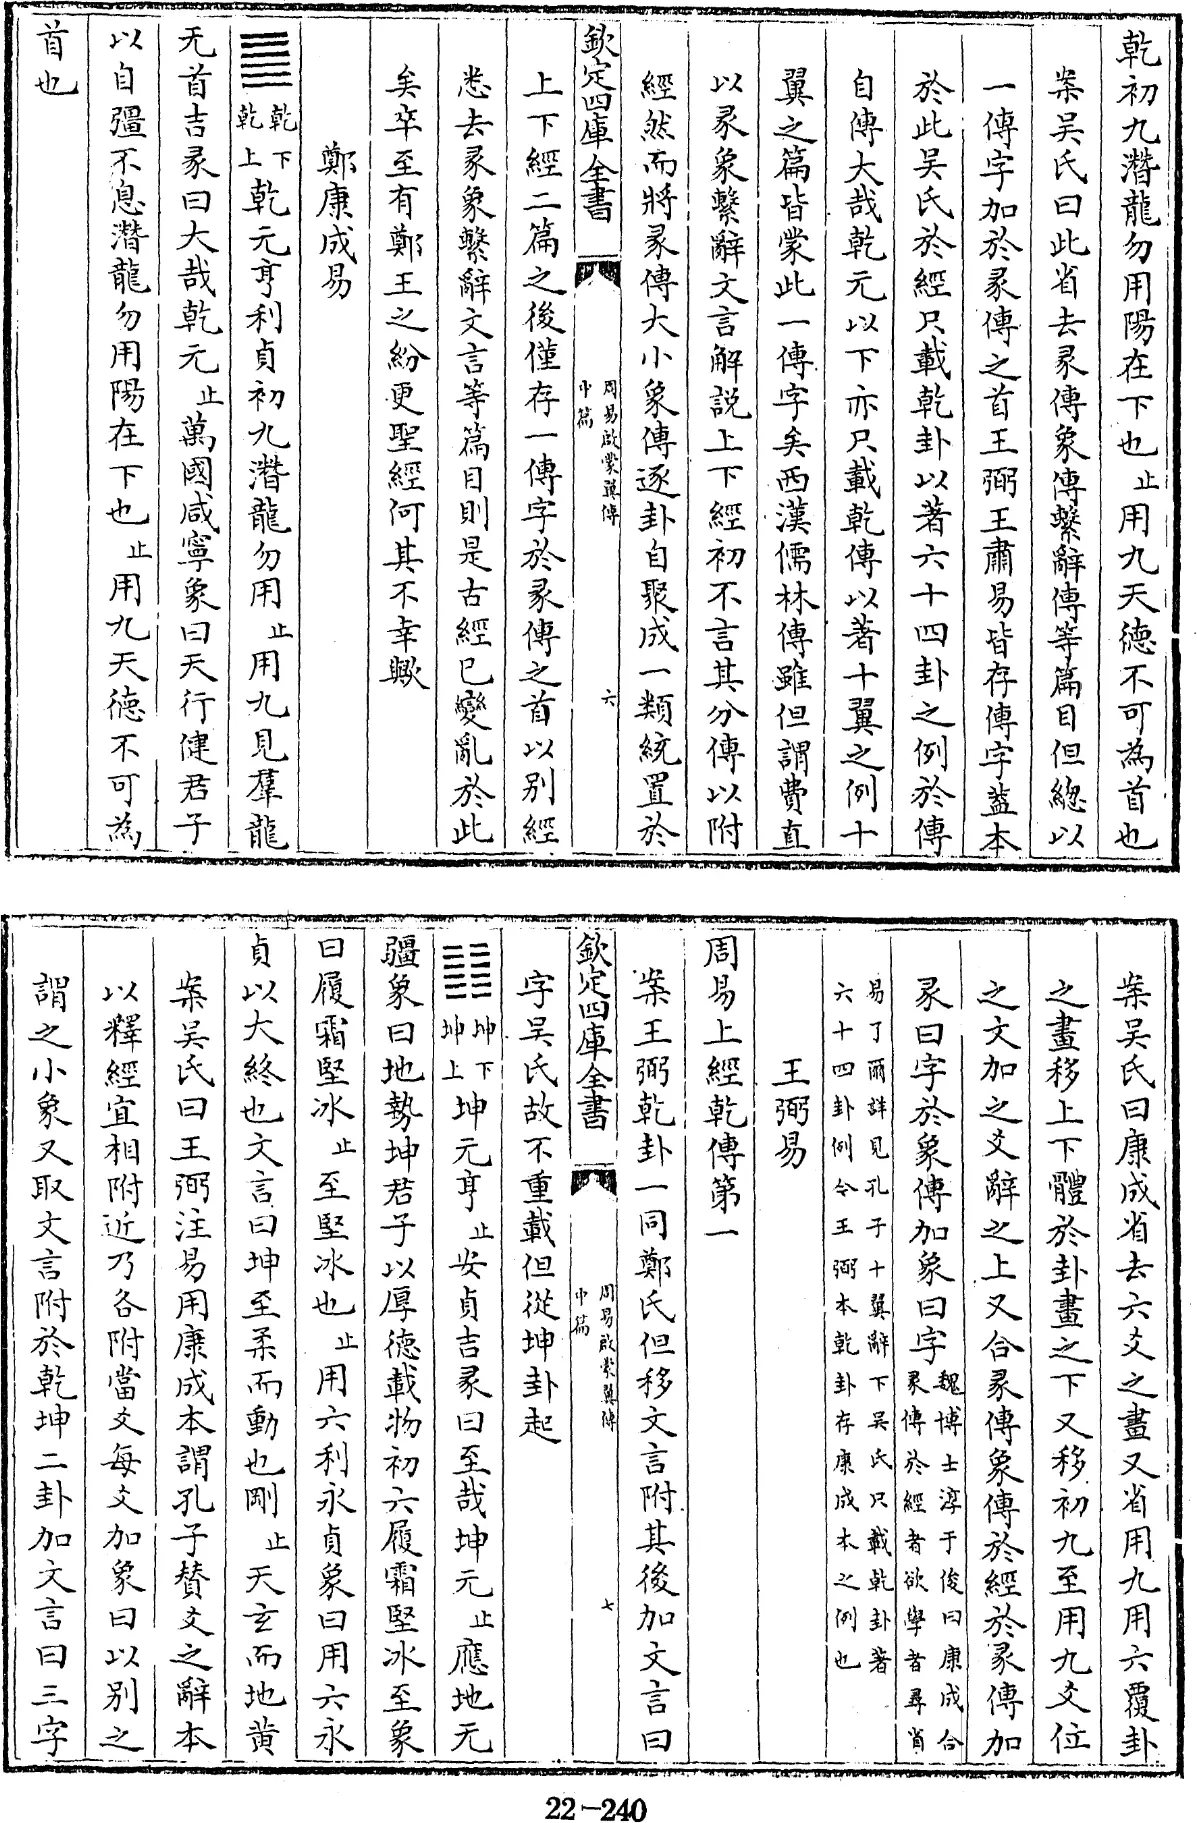 乾初九潛龍勿用陽在下也止用九天德不可為首也
案吳氏曰此省去彖傳象傳繫辭傳等篇目但總以
一傳字加於彖傳之首王弼王肅易皆存傳字葢本
於此吳氏於經只載乾卦以著六十四卦之例於傳
自傳大哉乾元以下亦只載乾傳以著十翼之例十
翼之篇皆蒙此一傳字矣西漢儒林傳雖但謂費直
以彖象繫辭文言解說上下經初不言其分傳以附
經然而將彖傳大小象傳逐卦自聚成一類統置於
欽定四庫全書
周易啟蒙翼傳
中篇
六
上下經二篇之後僅存一傳字於彖傳之首以别經
悉去彖象繫辭文言等篇目則是古經已變亂於此
矣卒至有鄭王之紛更聖經何其不幸歟
鄭康成易
䷀乾下
乾上乾元亨利貞初九潛龍勿用止用九見羣龍
无首吉彖曰大哉乾元止萬國咸寧象曰天行健君子
以自彊不息潛龍勿用陽在下也止用九天德不可為
首也
案吳氏曰康成省去六爻之畫又省用九用六覆卦
之畫移上下體於卦畫之下又移初九至用九爻位
之文加之爻辭之上又合彖傳象傳於經於彖傳加
彖曰字於象傳加象曰字魏博士淳于俊曰康成合
彖傳於經者欲學者尋省
易了爾詳見孔子十翼辭下吳氏只載乾卦著
六十四卦例今王弼本乾卦存康成本之例也
王弼易
周易上經乾傳第一
案王弼乾卦一同鄭氏但移文言附其後加文言曰
欽定四庫全書
周易啟蒙翼傳
中篇
七
字吳氏故不重載但從坤卦起
䷁坤下
坤上坤元亨止安貞吉彖曰至哉坤元止應地无
疆象曰地勢坤君子以厚德載物初六履霜堅冰至象
曰履霜堅冰止至堅冰也止用六利永貞象曰用六永
貞以大終也文言曰坤至柔而動也剛止天玄而地黄
案吳氏曰王弼注易用康成本謂孔子贊爻之辭本
以釋經宜相附近乃各附當爻每爻加象曰以别之
謂之小象又取文言附於乾坤二卦加文言曰三字
22-240